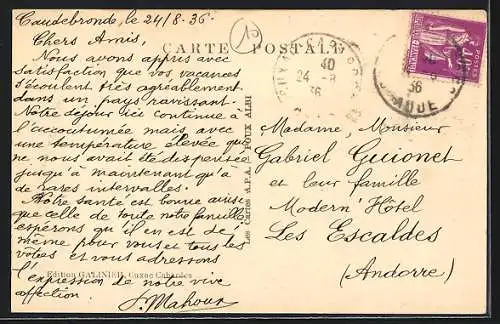 Caudebronde, le 24/8-36-
Chers Amis,
Nous avons appris avec
satisfaction que vos vacances
s'écoulent très agréablement
dans un pays ravissant.
Notre séjour ici continue à
l'accoutumée mais avec
une température élevée qui
ne nous avait été dispensée
jusqu'à maintenant qu'à
de rares intervalles.
Notre santé est bonne ainsi
que celle de toute notre famille
espérons qu'il en est de
même pour vous et tous les
vôtres et vous adressons
l'expression de notre vive
affection.
J. Mahoux
CARTE POSTALE
Edition GALINIER, Cuxac-Cabardès
Les Cartes A.P.A. POUX ALBI
40
24 -8
36
36
AUDE
Madame, Monsieur
Gabriel Guionet
et leur famille
Modern' Hôtel
Les Escaldes
(Andorre)